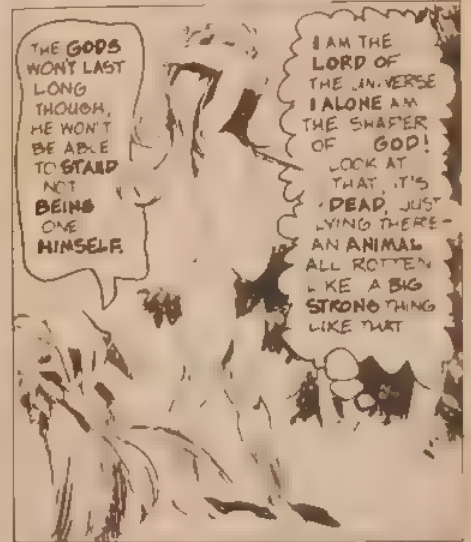 THE GODS
WON'T LAST
LONG
THOUGH,
HE WON'T
BE ABLE
TO STAND
NOT
BEING
ONE
HIMSELF.
I AM THE
LORD OF
THE UNIVERSE
I ALONE AM
THE SHAPER
OF GOD!
LOOK AT
THAT, IT'S
DEAD, JUST
LYING THERE-
AN ANIMAL
ALL ROTTEN
LIKE A BIG
STRONG THING
LIKE THAT